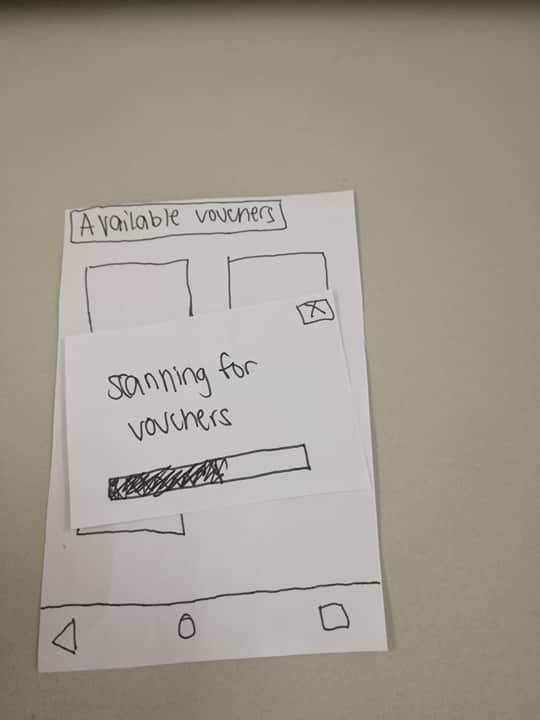 Available vouchers
X
scanning for
vouchers